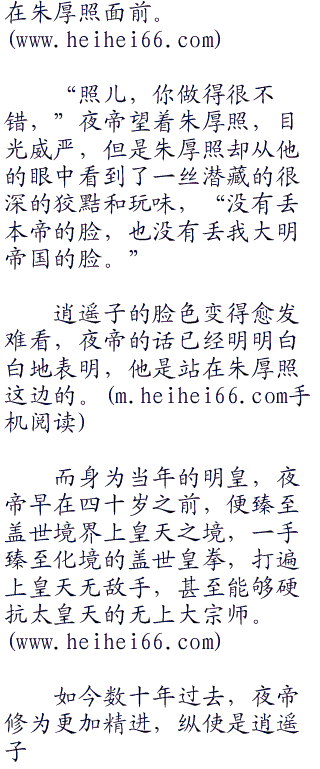 在朱厚照面前。
(www.heihei66.com)
“照儿，你做得很不
错，”夜帝望着朱厚照，目
光威严，但是朱厚照却从他
的眼中看到了一丝潜藏的很
深的狡黠和玩味，“没有丢
本帝的脸，也没有丢我大明
帝国的脸。”
逍遥子的脸色变得愈发
难看，夜帝的话已经明明白
白地表明，他是站在朱厚照
这边的。(m.heihei66.com手
机阅读)
而身为当年的明皇，夜
帝早在四十岁之前，便臻至
盖世境界上皇天之境，一手
臻至化境的盖世皇拳，打遍
上皇天无敌手，甚至能够硬
抗太皇天的无上大宗师。
(www.heihei66.com)
如今数十年过去，夜帝
修为更加精进，纵使是逍遥
子